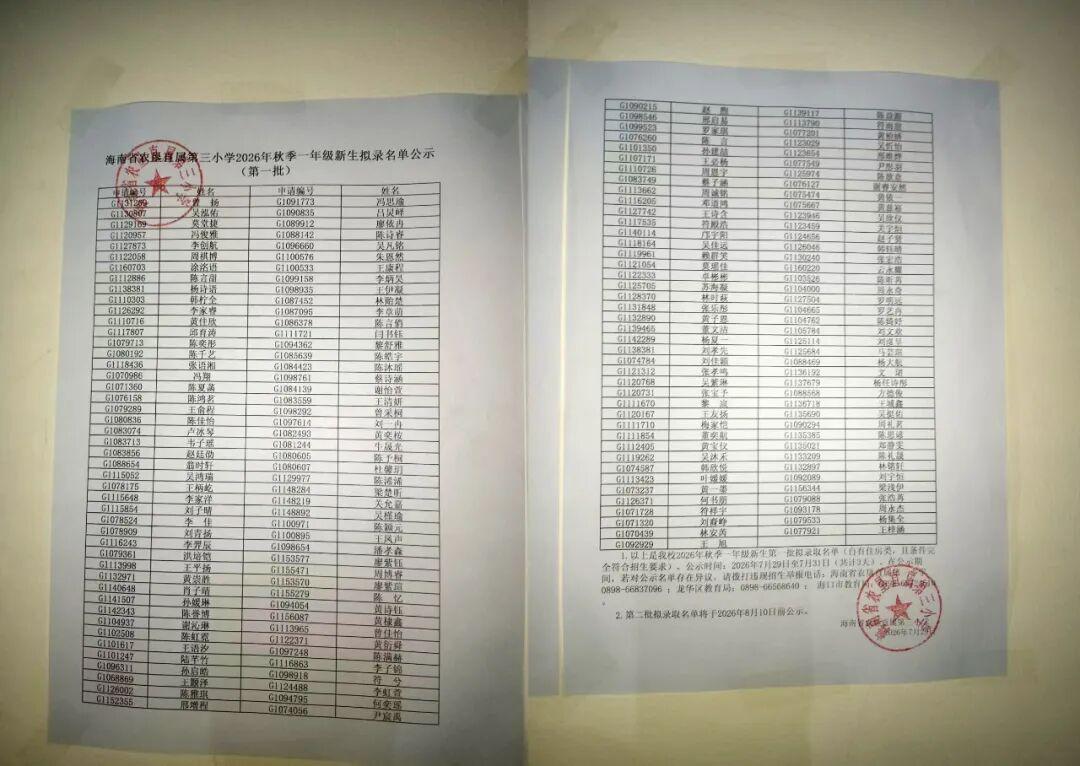 海南省农垦直属第三小学2026年秋季一年级新生拟录名单公示
（第一批）
申请编号 姓名 申请编号 姓名
G1131289 曾扬 G1091773 冯思瑜
G1130807 吴泓佑 G1090835 吕昊峄
G1129169 莫堂捷 G1089912 廖依冉
G1120957 冯俊雅 G1088142 陈诗睿
G1127873 李创航 G1096660 吴凡铭
G1122058 周祺博 G1100576 朱恩然
G1160703 涂洺语 G1100533 王康程
G1112886 陈言甜 G1099158 李炳昊
G1138381 杨诗语 G1098935 王伊凝
G1110303 韩柠全 G1087452 林贻楚
G1126292 李家睿 G1087095 李章萌
G1110716 黄佳欣 G1086378 陈言俏
G1117807 邱育涛 G1111721 闫书钰
G1079713 陈奕彤 G1094362 黎舒雅
G1080192 陈千艺 G1085639 陈皓宇
G1118436 张语湘 G1084423 陈沐瑶
G1070986 冯翔 G1098761 蔡诗涵
G1071360 陈夏菡 G1084139 谢怡萱
G1076158 陈鸿茗 G1083559 王清妍
G1079289 王俞程 G1098292 曾采桐
G1080836 陈佳怡 G1097614 刘一冉
G1083074 卢冰琴 G1082493 黄奕桉
G1083713 韦子瑶 G1081244 牛晟光
G1083856 赵廷勋 G1080605 陈予桐
G1088654 翁时轩 G1080607 杜馨玥
G1115052 吴鸿瑞 G1129977 陈浠浠
G1078175 王柄屹 G1148284 梁楚昕
G1115648 李家洋 G1148219 关允嘉
G1115854 刘子晴 G1148892 吴槿瑜
G1078524 李佳 G1100971 陈颢元
G1078909 刘青扬 G1100895 王风声
G1116243 李羿辰 G1098654 潘孝森
G1079361 洪培铠 G1153577 廖紫钰
G1113998 王平扬 G1155471 周博睿
G1132971 黄湛胜 G1153570 廖紫萱
G1140648 肖子晴 G1155279 陈忆
G1141507 孙媛琳 G1094054 黄诗钰
G1142343 陈誉博 G1156087 黄棣鑫
G1104937 谢沁琳 G1113965 曾佳怡
G1102508 陈虹霓 G1122371 黄衍舜
G1101617 王语汐 G1097248 陈满赫
G1101247 陆芊竹 G1116863 李子锦
G1096311 孙启皓 G1098918 符兮
G1068869 王颢泽 G1124488 李虹萱
G1126002 陈雅琪 G1094795 何奕瑶
G1152355 邢增程 G1074056 尹宸禹
G1090215 赵煦 G1139117
G1098546 邢启易 G1113790 符雨萱
G1099523 罗家琪 G1077201
G1076260 陈言 G1123029 吴忻怡
G1101350 孙建喆 G1123654
G1107171 王必杨 G1077549 尹彤羽
G1110726 周恩宇 G1125974
G1083749 蔡子涵 G1076127 谢睿安然
G1113662 周诚铭 G1075474 黄依一
G1116205 邓道鸿 G1075667
G1127742 王诗含 G1123946 吴欣仪
G1117535 符殿浩 G1123459 关宇恒
G1140114 邝宇阳 G1124656 赵子贤
G1118164 吴佳远 G1126046 韩钰晴
G1119961 赖群笑 G1130240 张宏浩
G1121054 莫瑞佳 G1160220 云永耀
G1122333 卓彬彬 G1103526 陈昕茜
G1125705 苏海凝 G1104000 周永奇
G1128370 林时菽 G1127504 罗明远
G1131848 张乐彤 G1104665 罗艺冉
G1132890 黄子恩 G1104762 陈绮妤
G1139465 董文洁 G1105784 刘文欢
G1142289 杨夏一 G1125114 刘泓呈
G1138381 刘孝先 G1125684 马芸琪
G1074784 刘佳颖 G1088469 杨大航
G1121312 张孝鸣 G1136192 文珺
G1120768 吴紫琳 G1137679 杨任诗彤
G1120731 张宝予 G1088568 方德俊
G1111670 黎宸 G1136718 王城鑫
G1120167 王友扬 G1135690 吴挺佑
G1111710 梅家恺 G1090294 周礼茗
G1111854 董奕航 G1135385 陈思谚
G1112405 黄宝仪 G1135021 郑静雯
G1119262 吴沐禾 G1133209 陈礼晟
G1074587 韩欣悦 G1132897 林铭钰
G1113423 叶媛媛 G1092089 刘宇恒
G1073237 黄一墨 G1156344 梁浅伊
G1126371 何书朋 G1079088 张浩苒
G1071728 符梓宇 G1093178 周永杰
G1071320 刘裔峥 G1079533 杨集全
G1070439 林安芮 G1077921 王梓涵
G1092929 王旭
1.以上是我校2026年秋季一年级新生第一批拟录取名单（自有住房类，且条件完
全符合招生要求）。公示时间：2026年7月29日至7月31日（共计3天）。在公示期
间，若对公示名单存在异议，请拨打违规招生举报电话：海南省农垦直属
0898-66837096；龙华区教育局：0898-66568640； 海口市教育局
。
2.第二批拟录取名单将于2026年8月10日前公示。
海南省农垦直属第三小学
2026年7月2